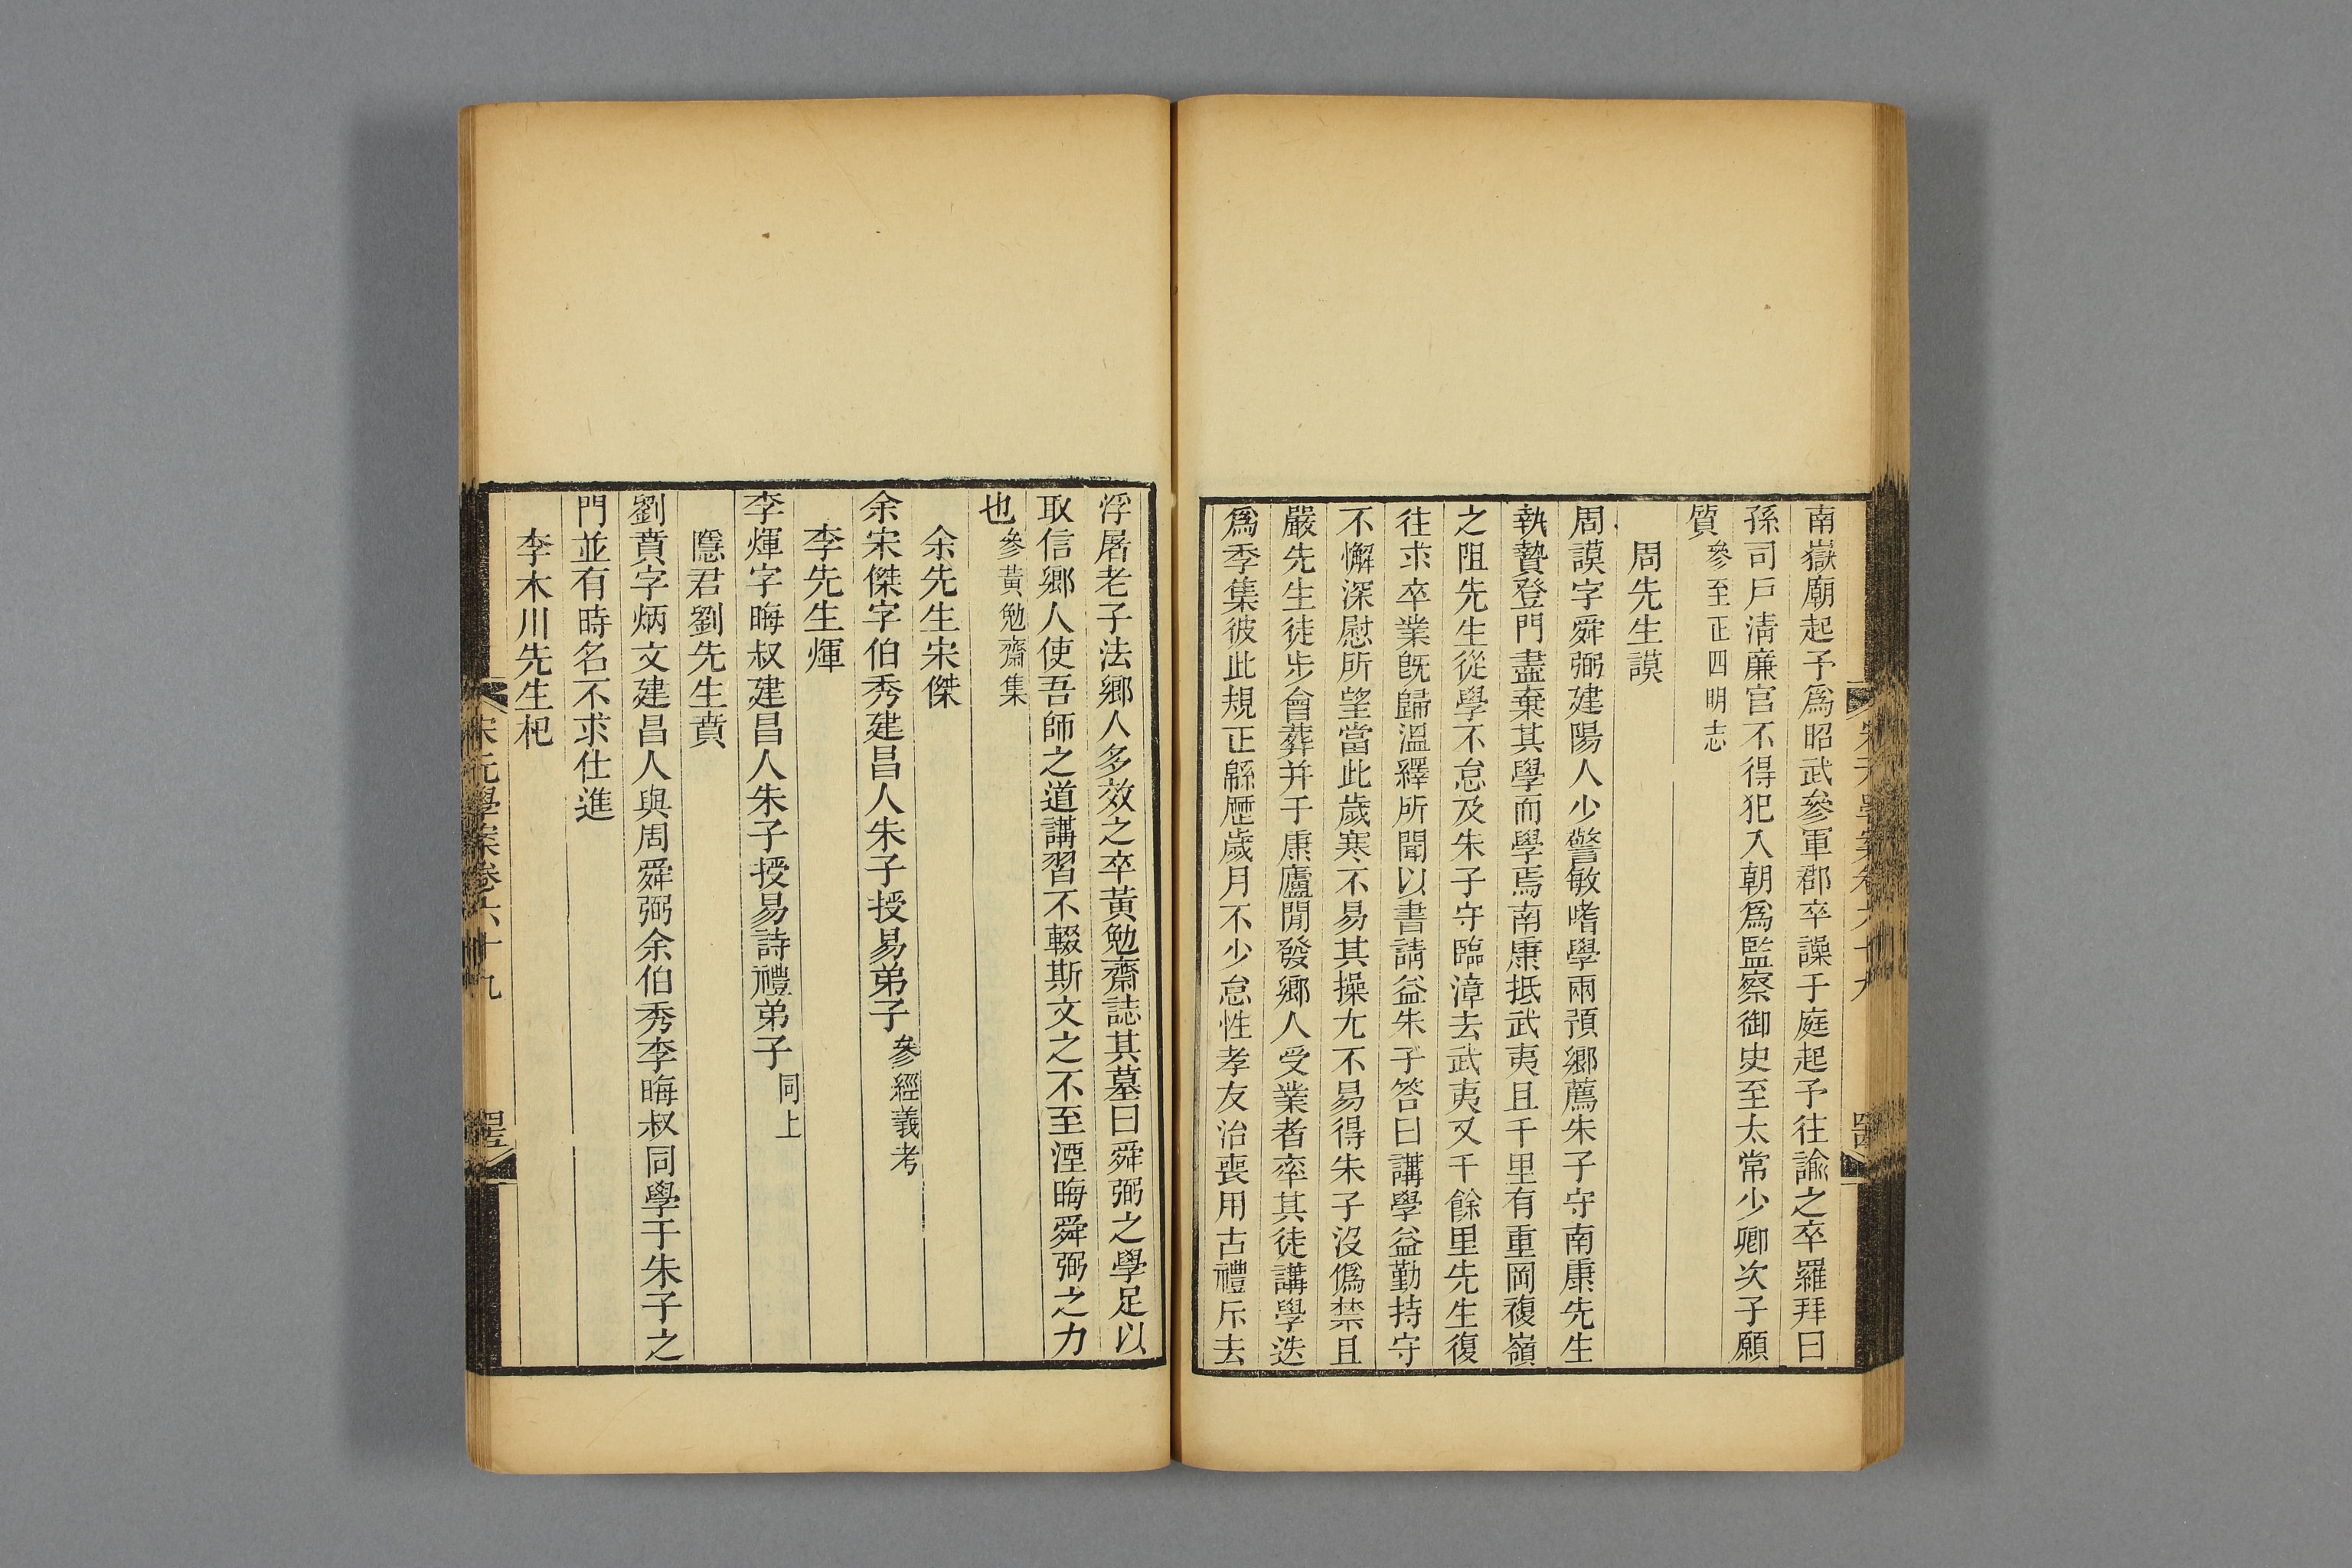 南嶽廟起予爲昭武參軍郡卒譟于庭起予往諭之卒羅拜曰
孫司戶淸廉官不得犯入朝爲監察御史至太常少卿次子願
質參至正四明志
周先生謨
周謨字舜弼建陽人少警敏嗜學兩預鄉薦朱子守南康先生
執贄登門盡棄其學而學焉南康抵武夷且千里有重岡複嶺
之阻先生從學不怠及朱子守臨漳去武夷又千餘里先生復
往求卒業旣歸溫繹所聞以書請益朱子答曰講學益勤持守
不懈深慰所望當此歲寒不易其操尢不易得朱子沒僞禁且
嚴先生徒步會葬并于康廬閒發鄉人受業者率其徒講學迭
爲季集彼此規正緜歷歲月不少怠性孝友治喪用古禮斥去
浮屠老子法鄉人多效之卒黃勉齋誌其墓曰舜弼之學足以
取信鄉人使吾師之道講習不輟斯文之不至湮晦舜弼之力
也參黃勉齋集
余先生宋傑
余宋傑字伯秀建昌人朱子授易弟子參經義考
李先生煇
李煇字晦叔建昌人朱子授易詩禮弟子同上
隱君劉先生賁
劉賁字炳文建昌人與周舜弼余伯秀李晦叔同學于朱子之
門並有時名不求仕進
李木川先生杞
宋元學案卷六十九